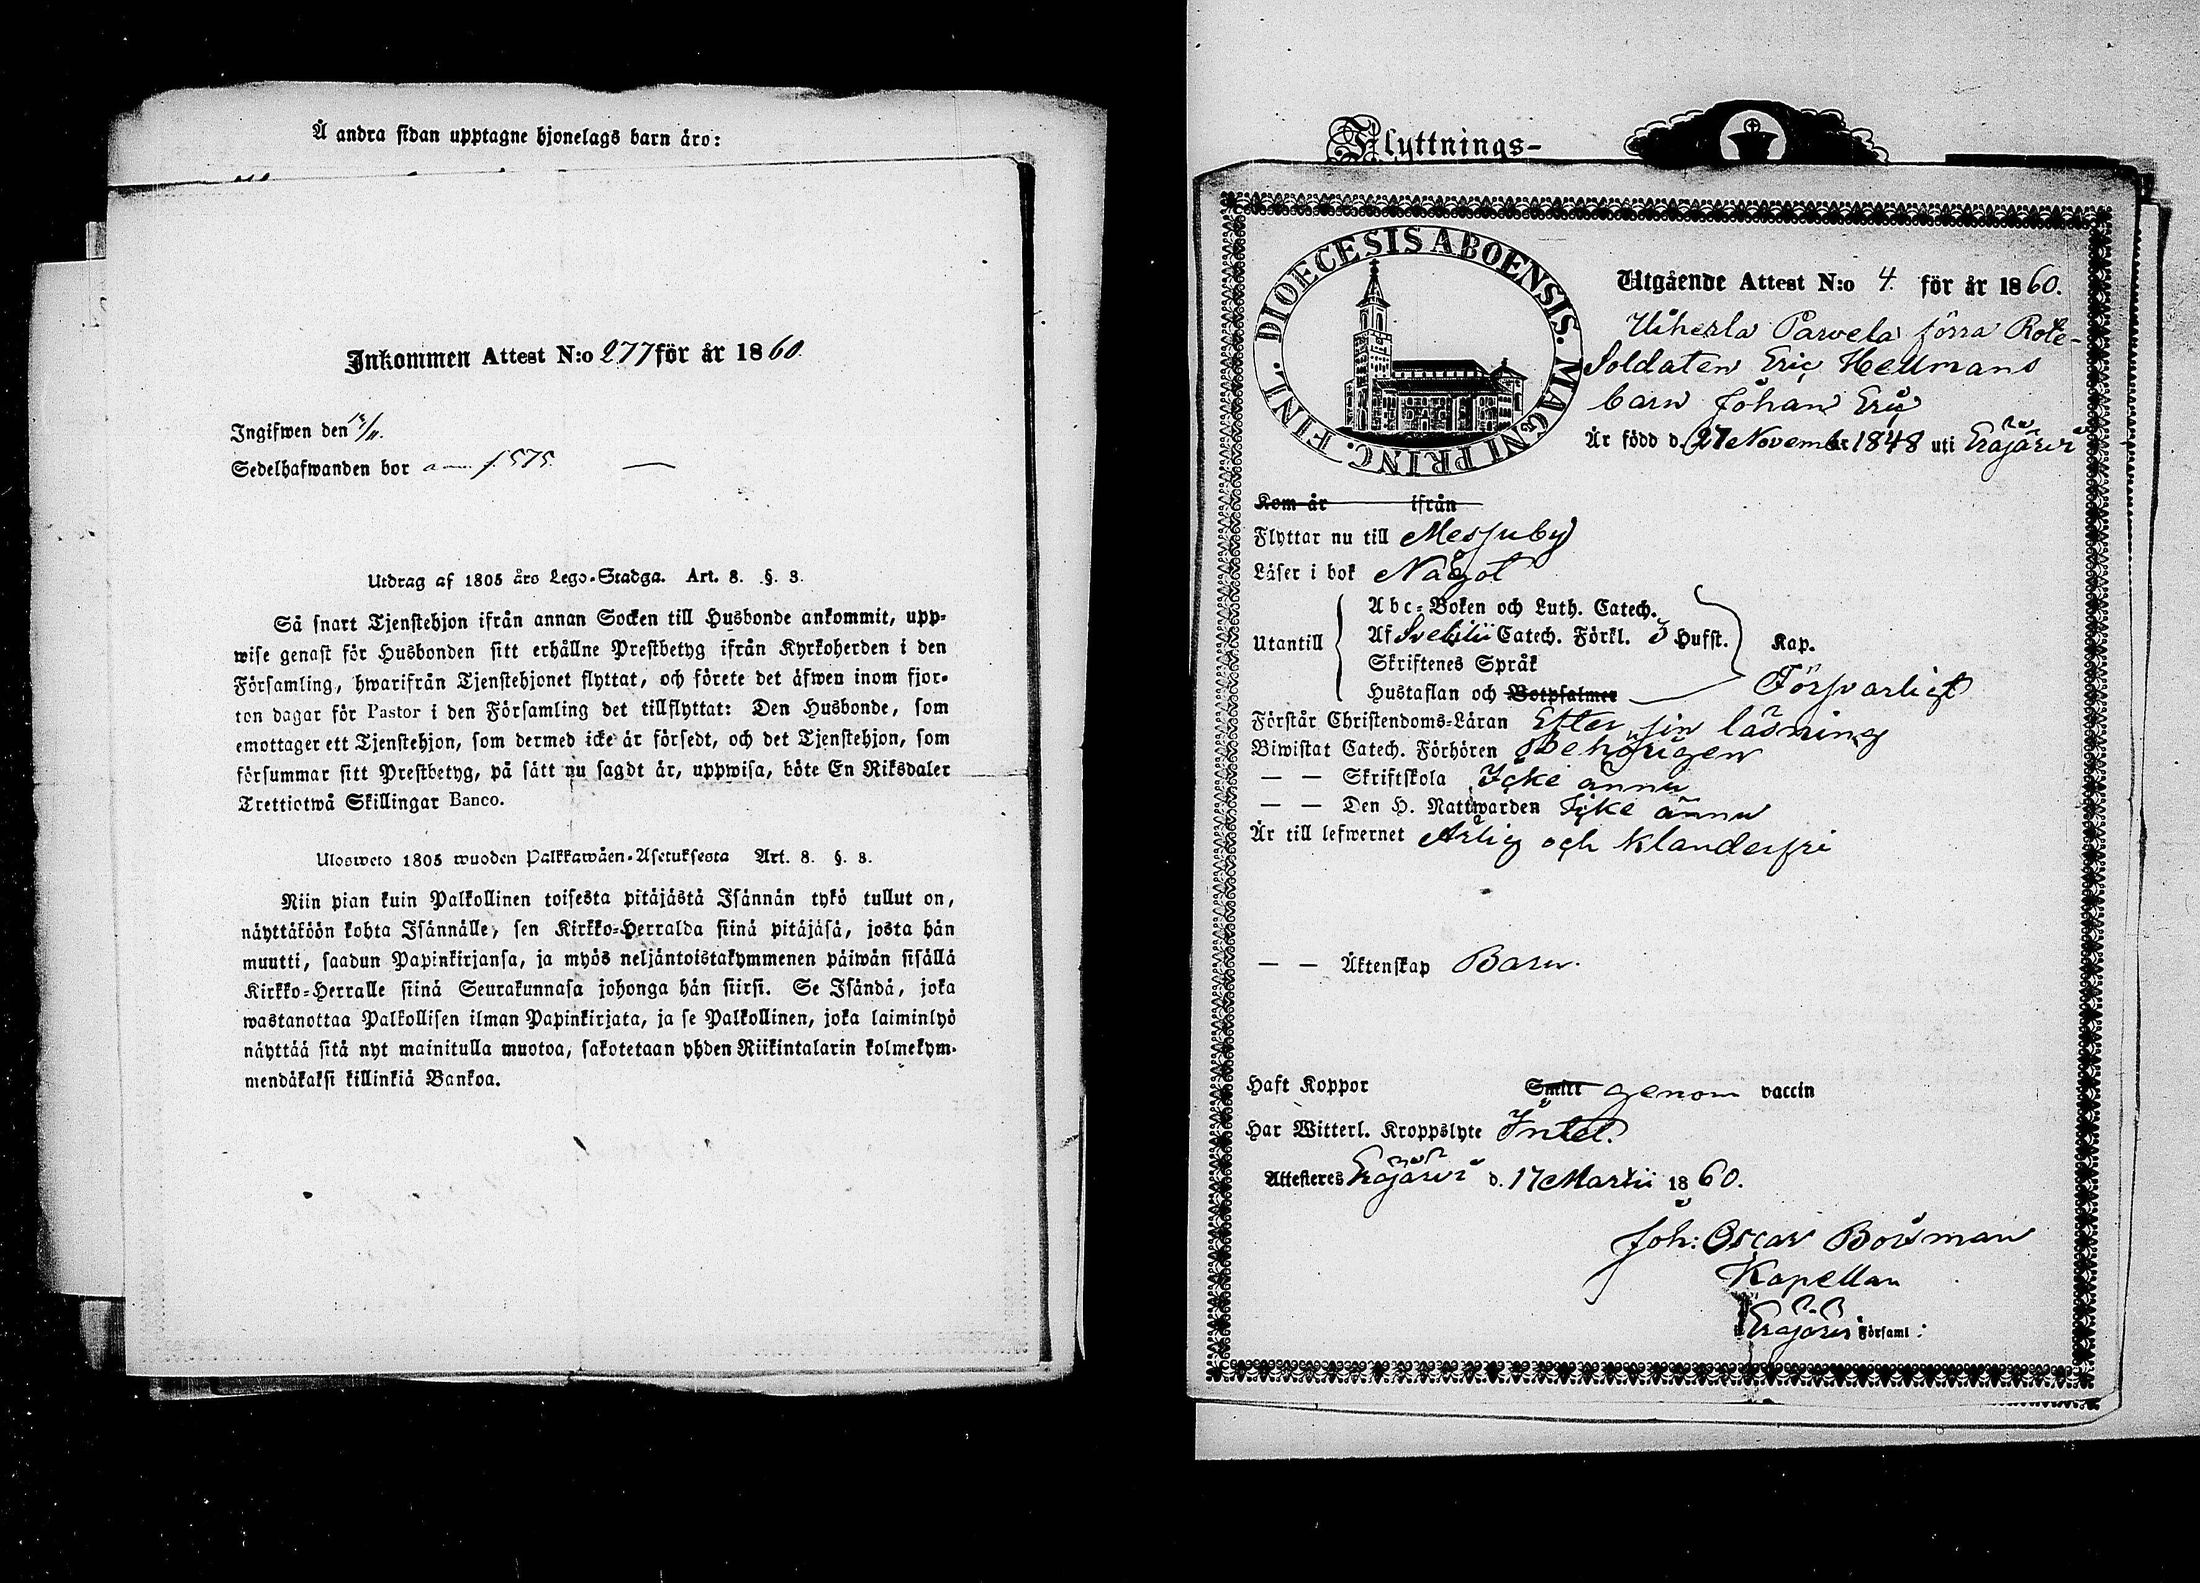 Å andra sidan upptagne hjonelags barn äro:
Inkommen Attest N:o 277 för år 1860.
Ingifwen den 12/11.
Sedelhafwanden bor f. 575.
Utdrag af 1805 års Lego-Stadga. Art. 8. §. 3.
Så snart Tjenstehjon ifrån annan Socken till Husbonde ankommit, upp-
wise genast för Husbonden sitt erhållne Prestbetyg ifrån Kyrkoherden i den
Församling, hwarifrån Tjenstehjonet flyttat, och förete det äfwen inom fjor-
ton dagar för Pastor i den Församling det tillflyttat: Den Husbonde, som
emottager ett Tjenstehjon, som dermed icke är försedt, och det Tjenstehjon, som
försummar sitt Prestbetyg, på sätt nu sagdt är, uppwisa, böte En Riksdaler
Trettiotwå Skillingar Banco.
Ulosweto 1805 wuoden Palkkawäen-Asetuksesta Art. 8. §. 3.
Niin pian kuin Palkollinen toisesta pitäjästä Isännän tykö tullut on,
näyttäköön kohta Isännälle, sen Kirkko-Herralda siinä pitäjäsä, josta hän
muutti, saadun Papinkirjansa, ja myös neljäntoistakymmenen päiwän sisällä
Kirkko-Herralle siinä Seurakunnasa johonga hän siirsi. Se Isändä, joka
wastanottaa Palkollisen ilman Papinkirjata, ja se Palkollinen, joka laiminlyö
näyttää sitä nyt mainitulla muotoa, sakotetaan yhden Riikintalarin kolmekym-
mendäkaksi killinkiä Bankoa.
Flyttnings-
DIOECESIS ABOENSIS. MAGNI PRINC. FINL.
Utgående Attest N:o 4. för år 1860.
Uiherla Parvela förra Rote-
Soldaten Eric Hellmans
barn Johan Eric
Är född d. 27 Novemb 1848 uti Eräjärvi
Kom år ifrån
Flyttar nu till Mesjuby
Läser i bok Något
Abc-Boken och Luth. Catech.
Utantill Af Svebilii Catech. Förkl. 3 Hufst. Kap.
Skriftenes Språk
Hustaflan och Botpsalmer Försvarligt
Förstår Christendoms-Läran Efter sin läsning
Biwistat Catech. Förhören Behörigen
— — Skriftskola Icke ännu
— — Den H. Nattwarden Icke ännu
Är till lefwernet Ärlig och klanderfri
— — Äktenskap Barn.
Haft Koppor Smitt genom vaccin
Har Witterl. Kroppslyte Intet.
Attesteres Eräjärvi d. 17 Martii 1860.
Joh: Oscar Bonsman
Kapellan
i Eräjärvi Församl: